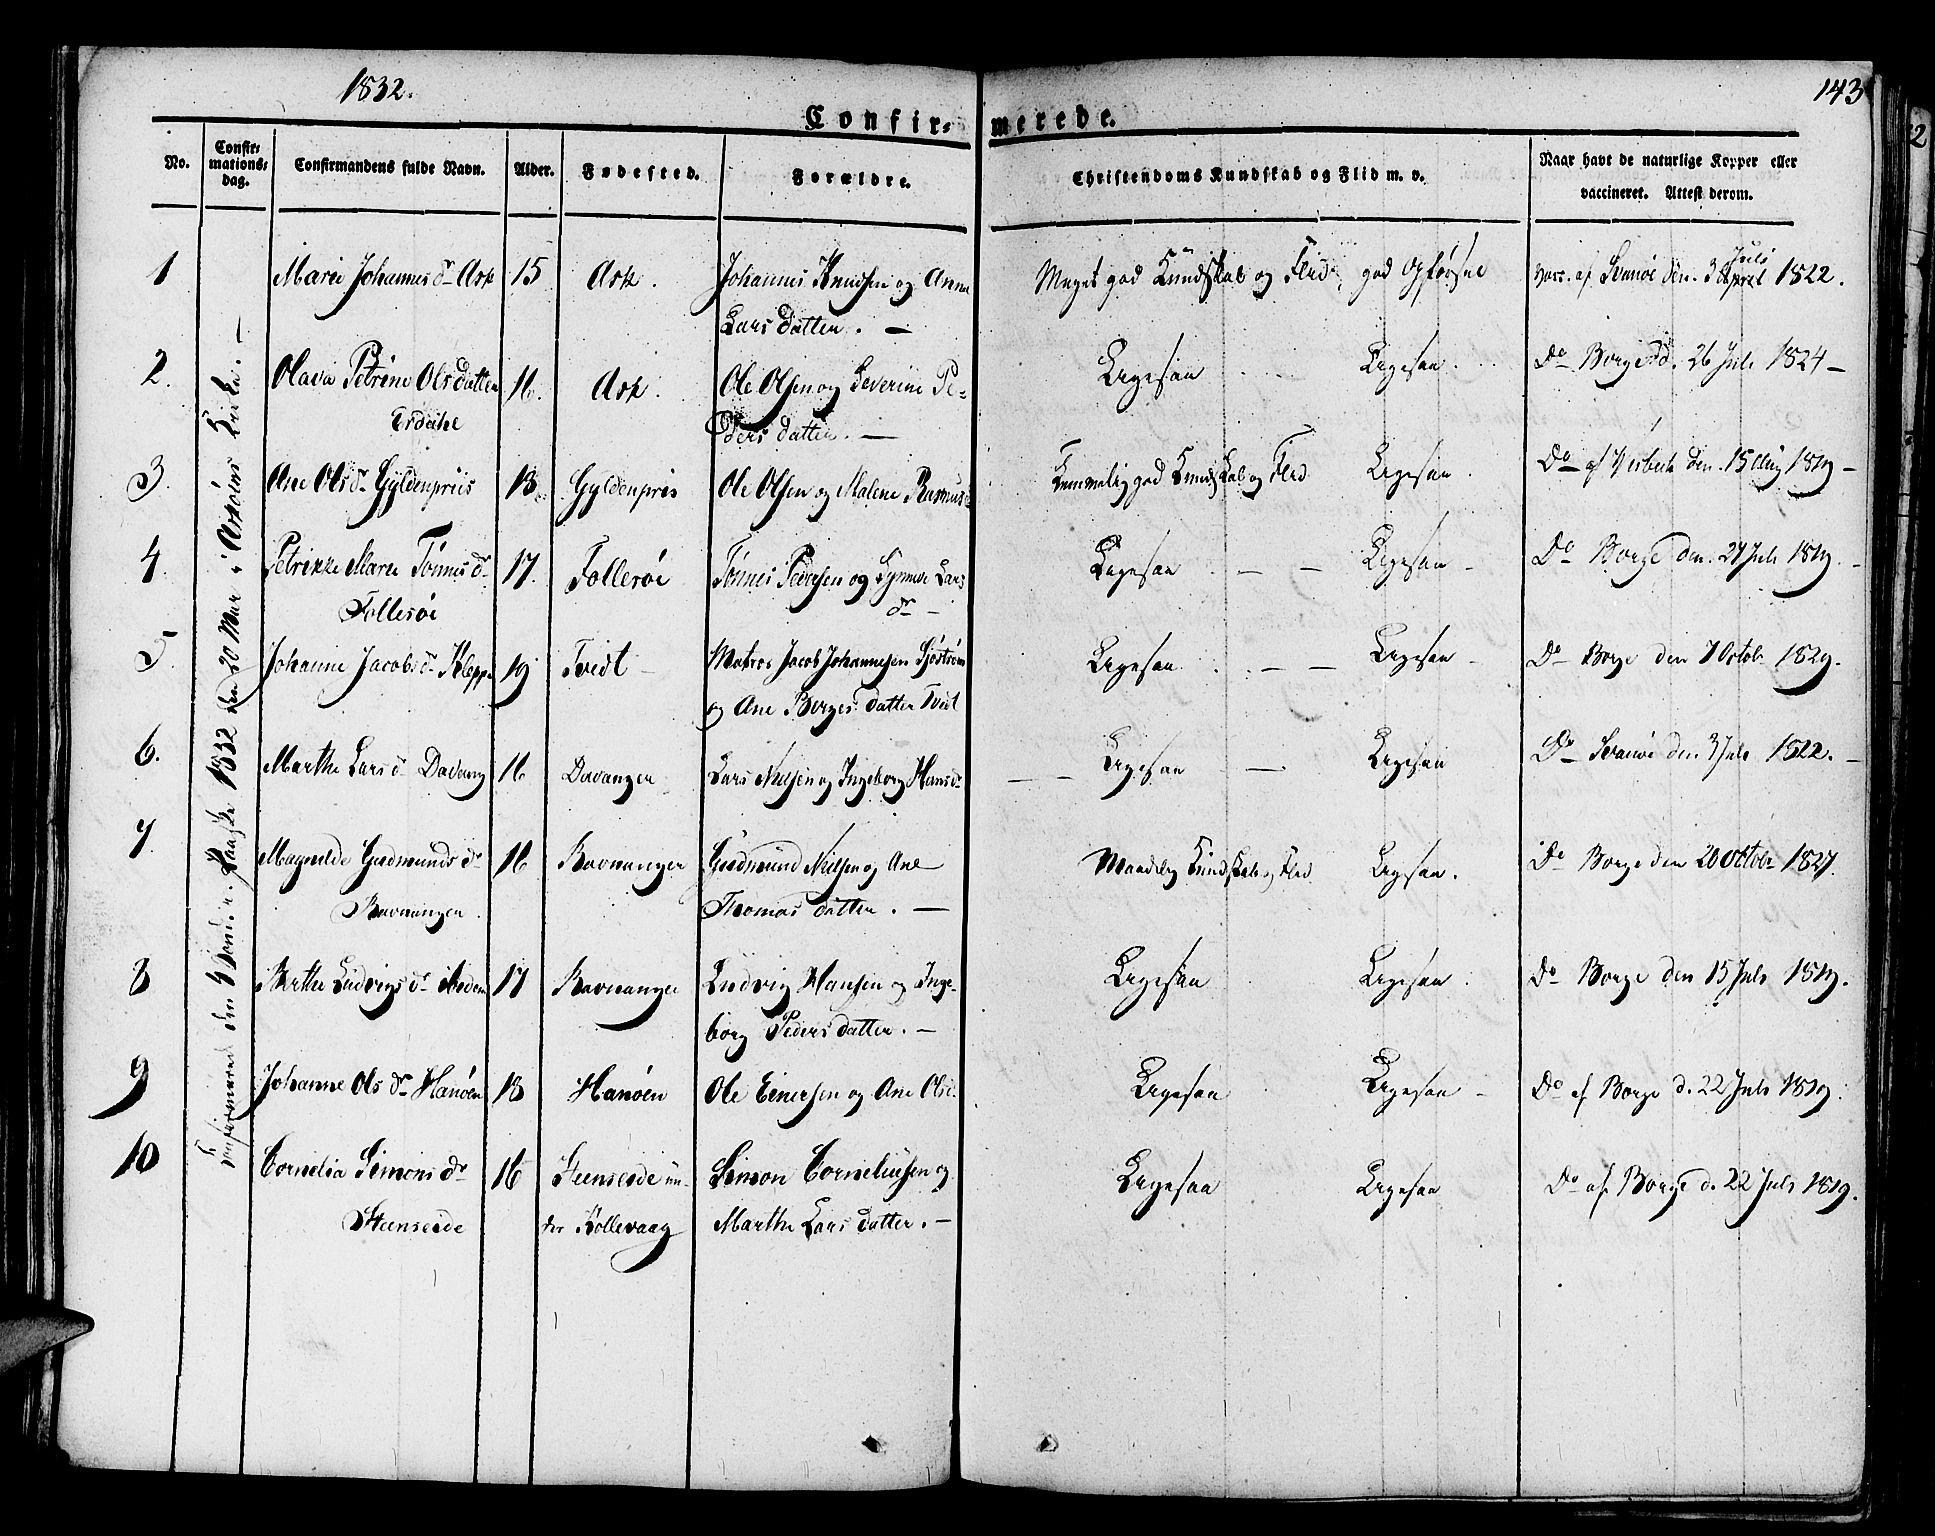 1832.
143
Confir-
merede.
No.
Confir-
mations-
dag.
Confirmandens fulde Navn.
Alder.
Fødested.
Forældre.
Christendoms Kundskab og Flid m. v.
Naar havt de naturlige Kopper eller
vaccineret. Attest derom.
Confirmerede den 4 Dom: e: Paaske 1832 den 20 Mai i Askøens Kirke. —
1 Marie Johannes dr Ask 15 Ask. Johannes Knudsen og Anna Meget god Kundskab og Flid, god Opførsel vacc. af Svanøe den. 3 Juli April 1822.
Lars datter. —
2. Olava Petrine Olsdatter 16. Ask. Ole Olsen og Severine Pe- Ligesaa Ligesaa. Do Borge d. 26 Juli 1824 —
Erdahl
ders datter. —
3. Ane Ols dr Gyldenpriis 18. Gyldenpris Ole Olsen og Malene Rasmus Temmelig god Kundskab og Flid Ligesaa. Do af den. 15 1819 —
4. Petrikke Marie Tönnes dr 17. Follesöe Tönnes Pedersen og Synneve Lars Ligesaa — — Ligesaa — Do Borge den. 27 Juli 1819. —
Follesöe
dr —
5 Johanne Jacobs dr Kleppe 19 Tvedt — Matros Jacob Johannesen Sjöström Ligesaa . — — Ligesaa — Do Borge den 7 Octob. 1829.
og Ane Borges datter Tvedt
6. Marthe Lars dr Davang 16 Davanger Lars Nielsen og Ingeborg Hans dr — — Ligesaa — Ligesaa Do Svanöe den 3 Juli 1822. —
7. Magnilde Gudmunds dr 16 Ravnanger Gudmund Nielsen og Ane Maadelig Kundskab og Flid Ligesaa. Do Borge den 20 Octobr 1827.
Ravnanger.
Thomas datter. —
8 Berthe Ludvigs dr 17 Ravnanger Ludvig Hansen og Inge- Ligesaa Ligesaa. Do Borge den 15 Juli 1819.
borg Peders datter. —
9 Johanne Ols dr Hanöen 18 Hanöen Ole Einersen og Ane Ols Ligesaa Ligesaa — Do af Borge d. 22 Juli 1819.
10 Cornelia Simons dr 16 Steenseide un- Simon Corneliusen og Ligesaa Ligesaa Do af Borge d. 22 Juli 1819.
Steenseide
der Kollevaag
Marthe Lars datter. —
2